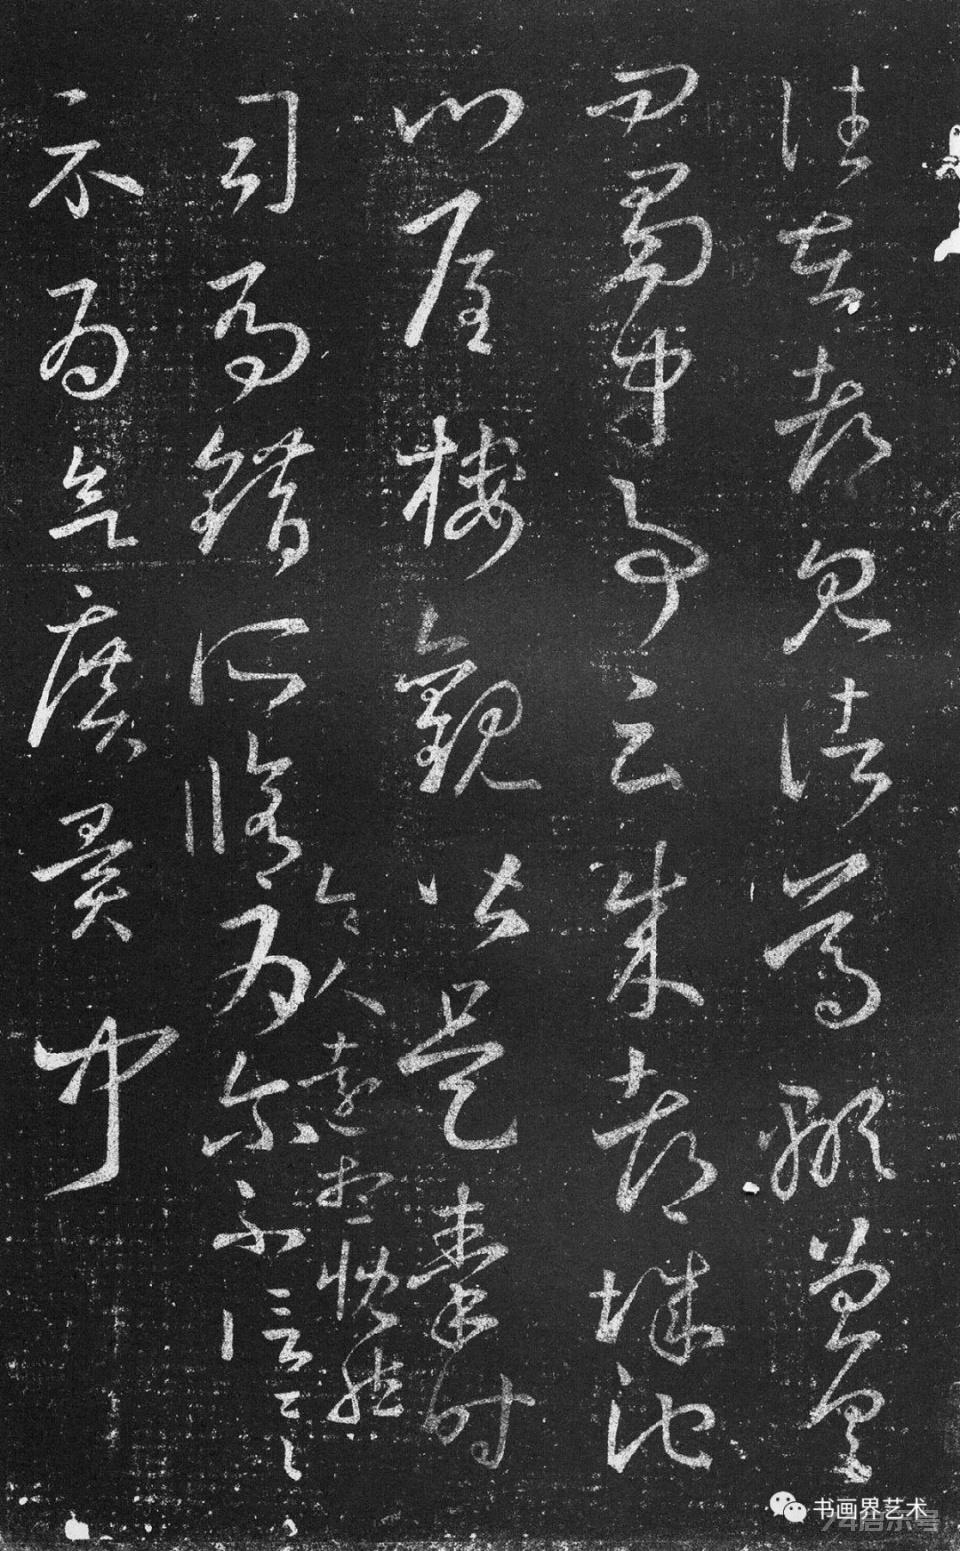 往在都見諸葛顒曾具
問蜀中事云成都城池
門屋樓觀皆是秦時
司馬錯所脩令人遠想慨然為爾不信一一
示為欲廣異聞
书画界艺术